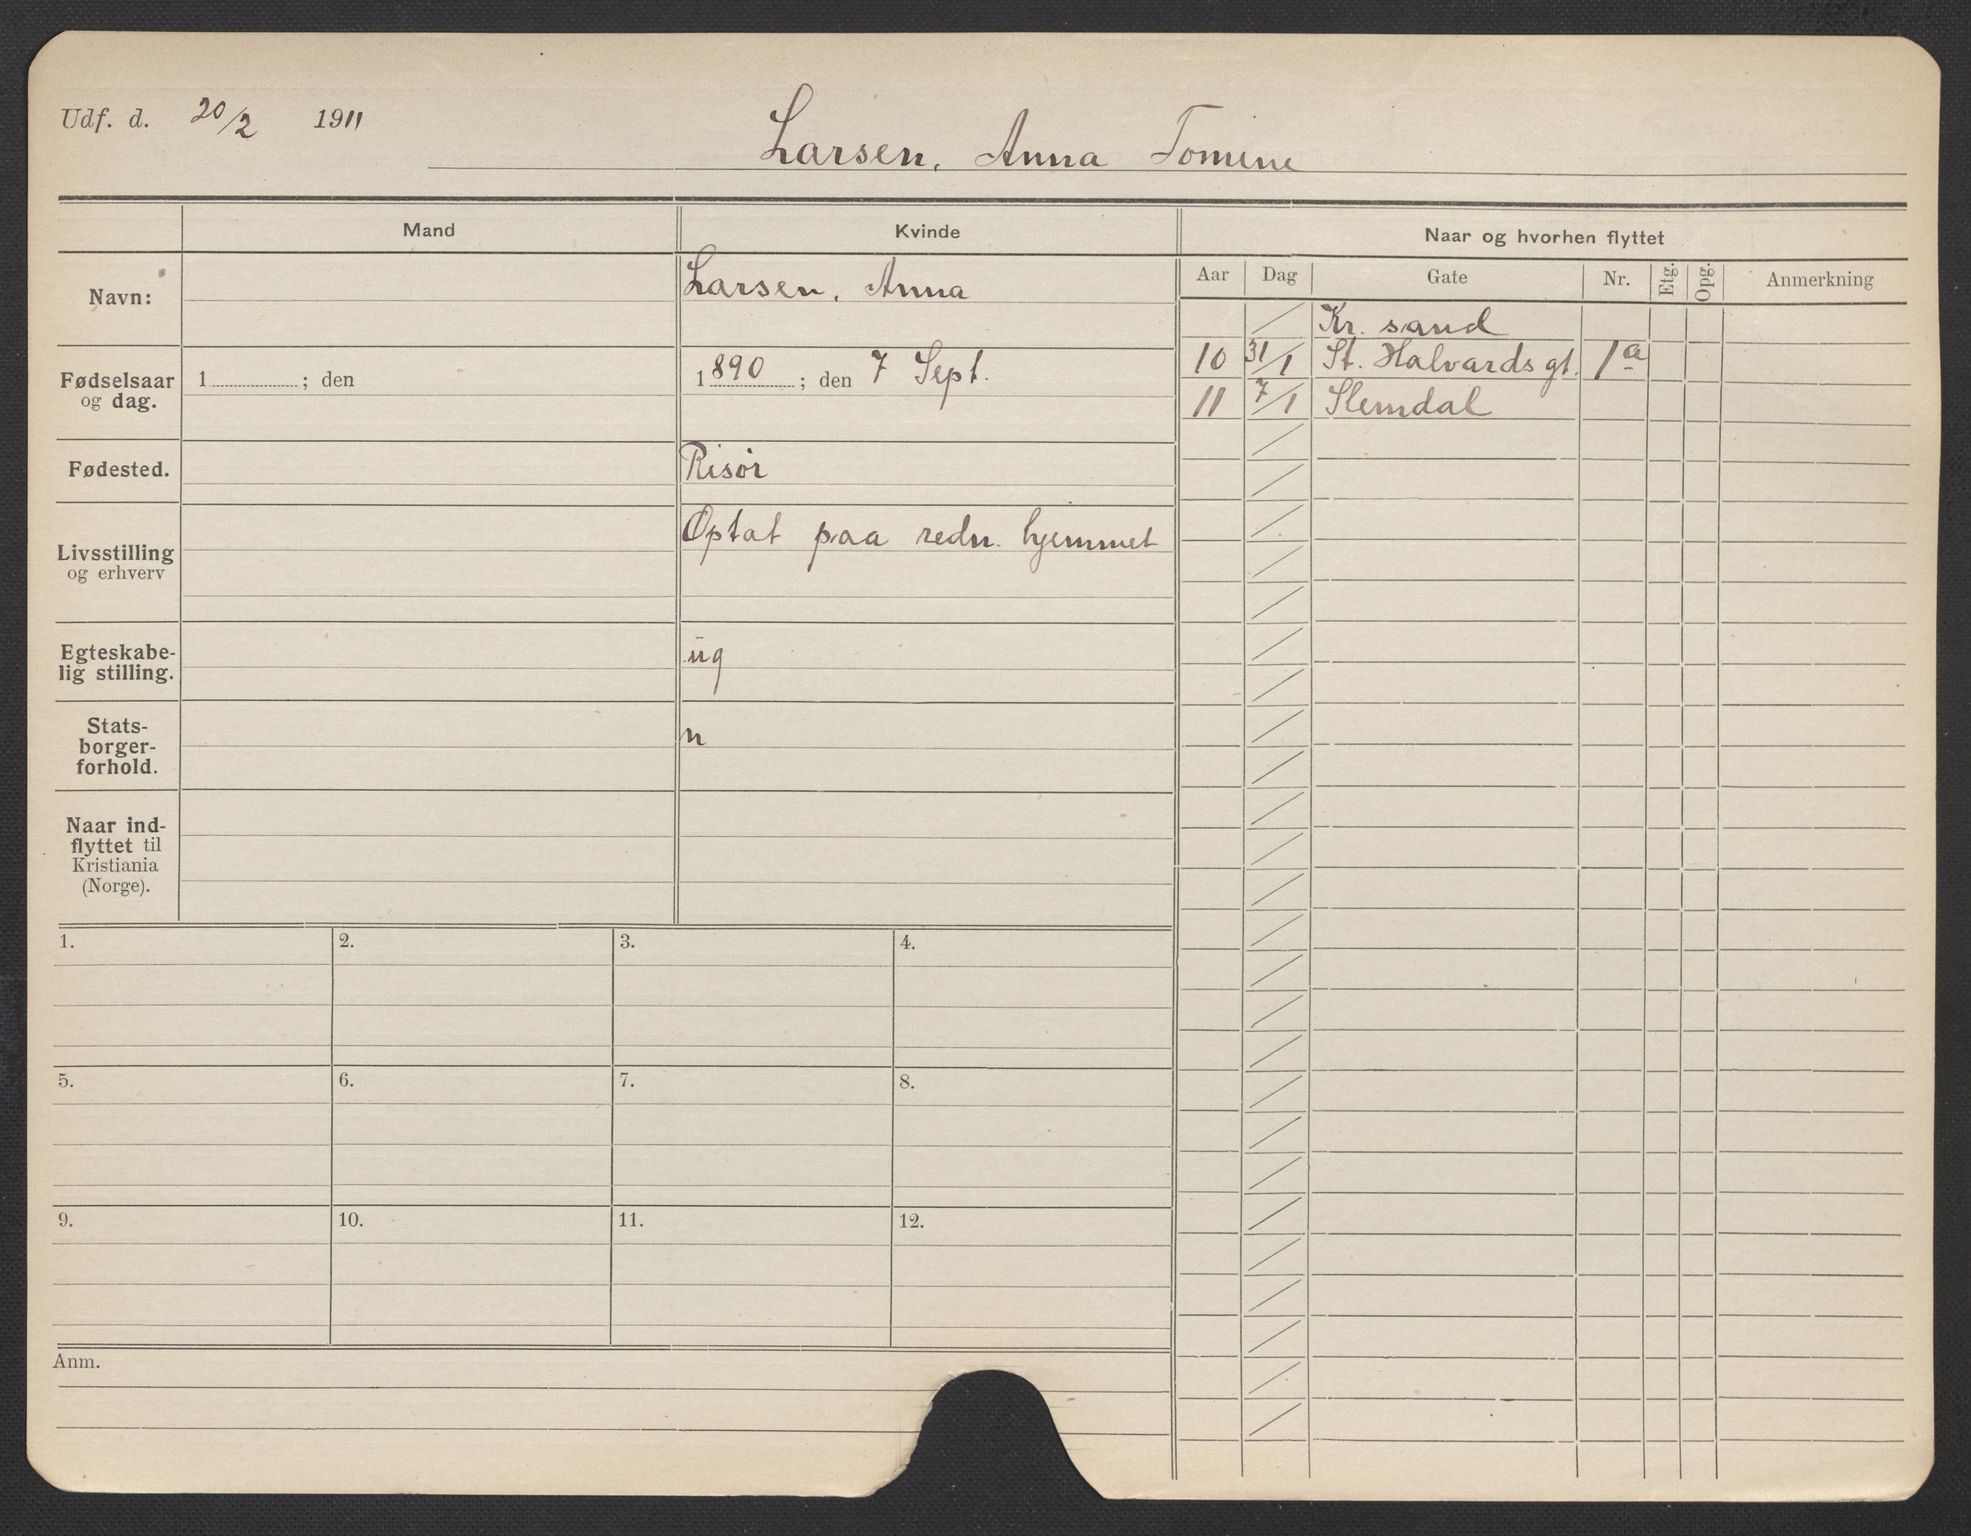 Udf. d. 20/2 1911
Larsen, Anna Tomine
Mand
Kvinde
Naar og hvorhen flyttet
Aar Dag Gate Nr. Etg. Opg. Anmerkning
Navn:
Larsen, Anna
Kr. sand
10 31/1 St. Halvards gt. 1a
11 7/1 Slemdal
Fødselsaar
og dag.
1 ; den
1890 ; den 7 Sept.
Fødested.
Risør
Livsstilling
og erhverv
Optat paa redn. hjemmet
Egteskabe-
lig stilling.
ug
Stats-
borger-
forhold.
n
Naar ind-
flyttet til
Kristiania
(Norge).
1. 2. 3. 4.
5. 6. 7. 8.
9. 10. 11. 12.
Anm.